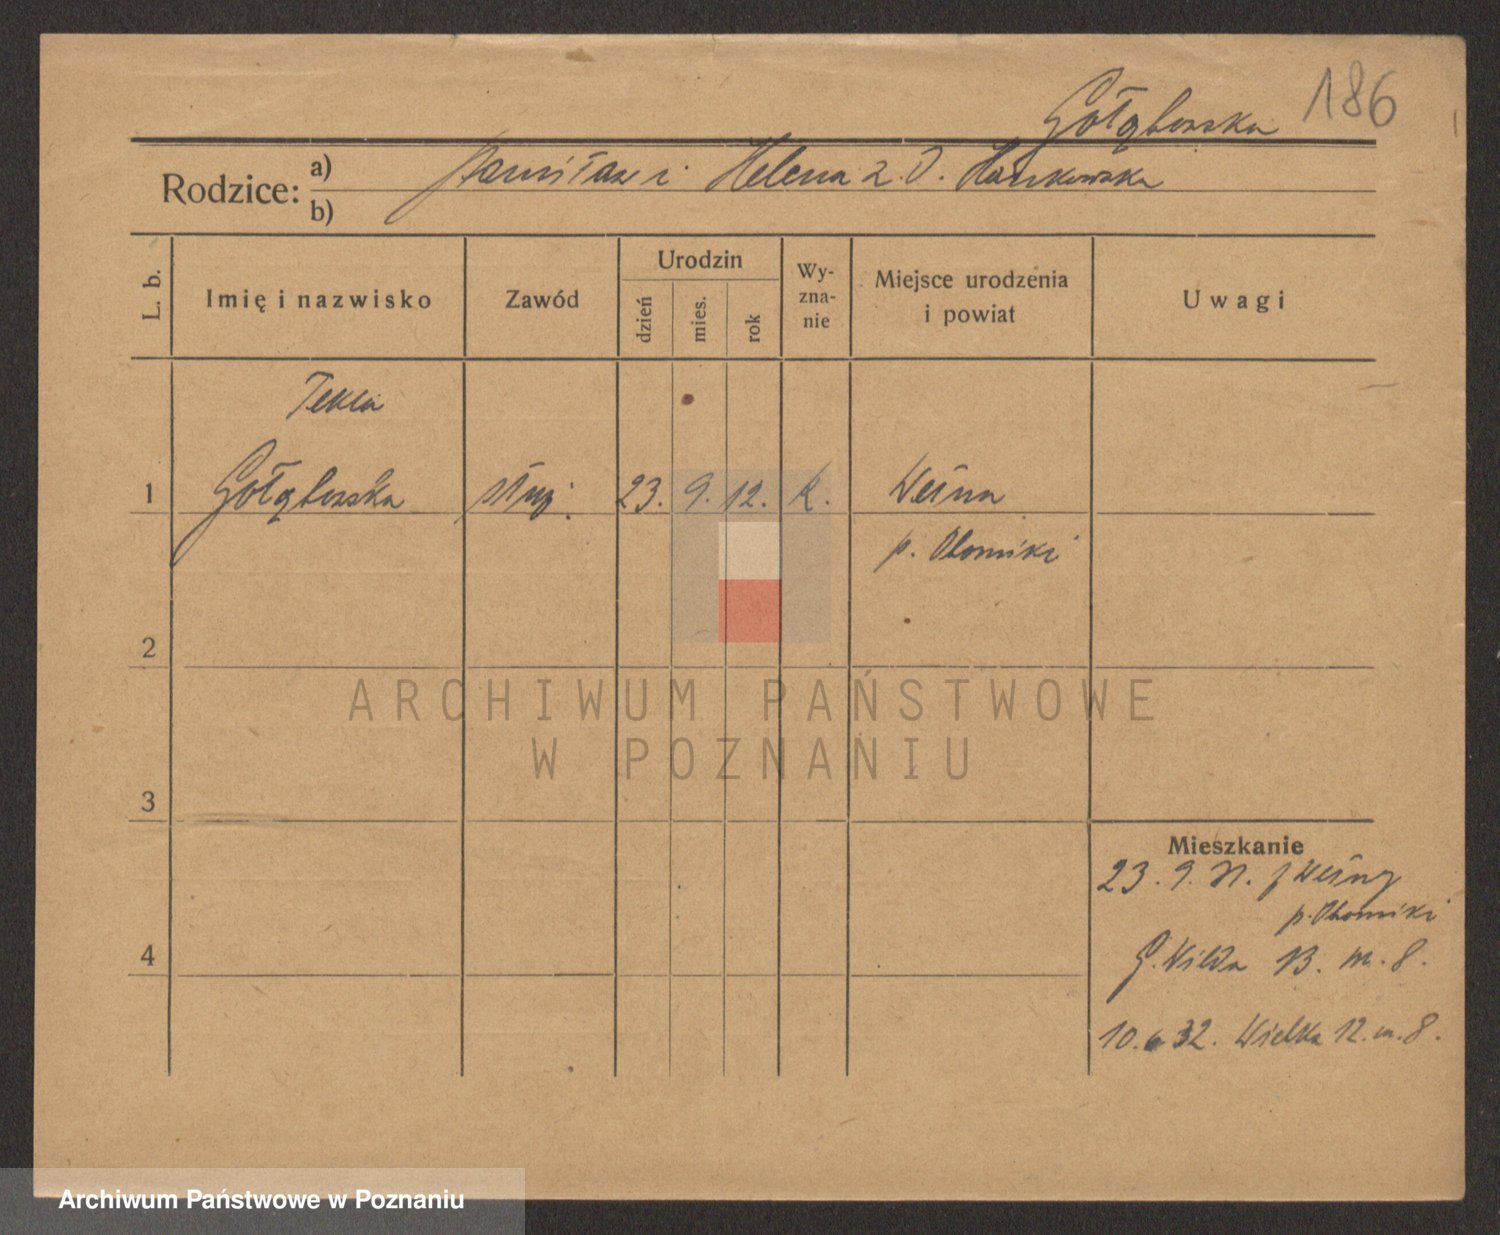 186
Gołąbowska
Rodzice: a) Stanisław i Helena z. D. Hankowska
b)
L. b. Imię i nazwisko Zawód Urodzin dzień mies. rok Wyzna-nie Miejsce urodzenia i powiat Uwagi
Tekla
1 Gołąbowska służ. 23. 9. 12. k. Wełna
p. Oborniki
2
ARCHIWUM PAŃSTWOWE
W POZNANIU
3
Mieszkanie
23. 9. 31. z Wełny
p. Oborniki
4 G. Wilda 13. m. 8.
10. 6 32. Wielka 12. m. 8.
Archiwum Państwowe w Poznaniu